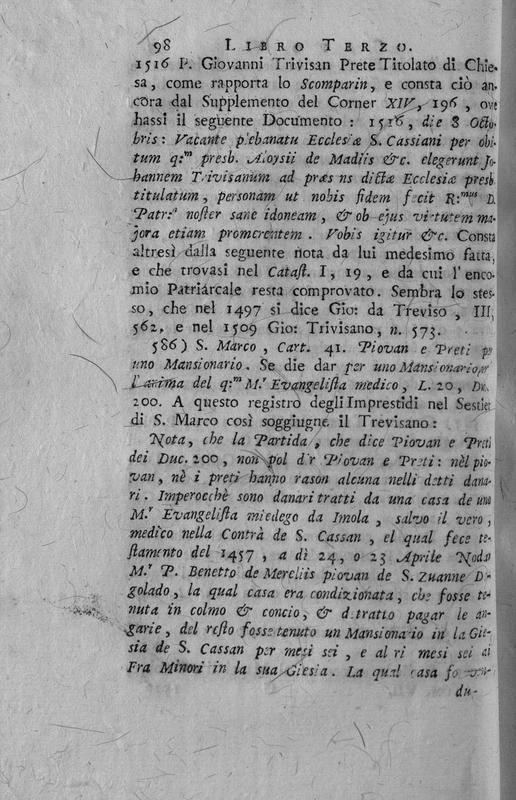 98 LIBRO TERZO.
1516 P. Giovanni Trivisan Prete Titolato di Chie-
sa, come rapporta lo Scomparin, e consta ciò an-
cora dal Supplemento del Corner XIV, 196, ove
hassi il seguente Documento: 1516, die 8 Octo-
bris: Vacante plebanatu Ecclesiæ S. Cassiani per obi-
tum q:m presb. Aloysii de Madiis &c. elegerunt Jo-
hannem Trivisanum ad præsns dictæ Ecclesiæ presb.
titulatum, personam ut nobis fidem fecit R:mus D.
Patr:a noster sane idoneam, & ob ejus virtutem ma-
jora etiam promerentem. Vobis igitur &c. Consta
altresì dalla seguente nota da lui medesimo fatta,
e che trovasi nel Catast. I, 19, e da cui l'enco-
mio Patriarcale resta comprovato. Sembra lo stes-
so, che nel 1497 si dice Gio: da Treviso, III,
562, e nel 1509 Gio: Trivisano, n. 573.
586) S. Marco, Cart. 41. Piovan e Preti per
uno Mansionario. Se die dar per uno Mansionario per
l'anima del q:m M.r Evangelista medico, L. 20, Duc.
200. A questo registro degli Imprestidi nel Sestier
di S. Marco così soggiugne il Trevisano:
Nota, che la Partida, che dice Piovan e Preti
dei Duc. 200, non pol dir Piovan e Preti: nèl pio-
van, nè i preti hanno rason alcuna nelli detti dana-
ri. Imperocchè sono danari tratti da una casa de uno
M.r Evangelista miedego da Imola, salvo il vero,
medico nella Contrà de S. Cassan, el qual fece te-
stamento del 1457, a dì 24, o 23 Aprile Noda
M.r P. Benetto de Merciiis piovan de S. Zuanne D-
golado, la qual casa era condizionata, che fosse te-
nuta in colmo & concio, & detratto pagar le an-
garie, del resto fosse tenuto un Mansionario in la Gie-
sia de S. Cassan per mesi sei, e altri mesi sei ai
Fra Minori in la sua Giesia. La qual casa fo ven-
du-